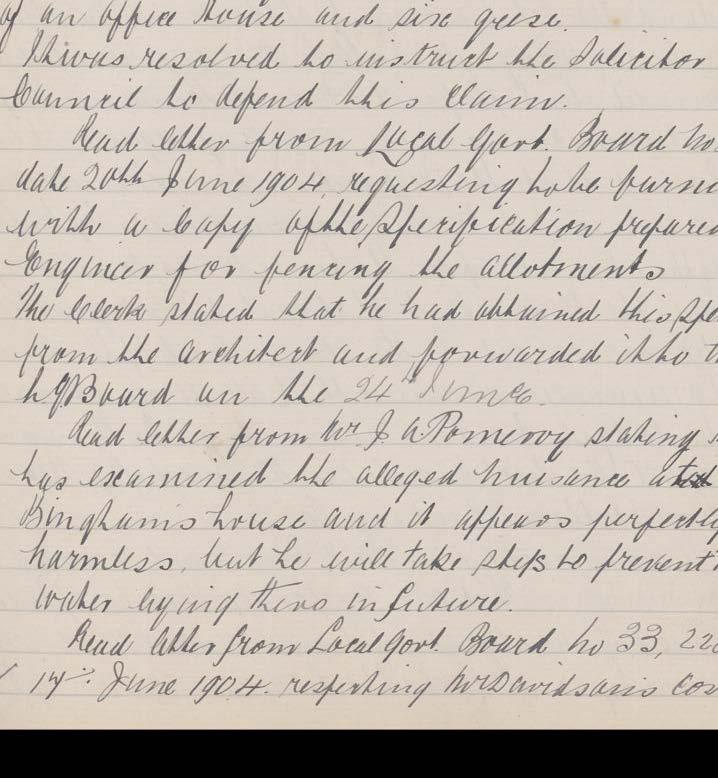 of an office house and six geese.
It was resolved to instruct the Solicitor
Council to defend this claim.
Read letter from Local Govt. Board No.
date 20th June 1904, requesting to be furni
with a Copy of the Specification prepared
Engineer for fencing the allotments
The Clerk stated that he had obtained this Spe
from the architect and forwarded it to t
L G Board on the 24th June.
Read letter from Mr J A Pomeroy stating
has examined the alleged nuisance at
Bingham's house and it appears perfectly
harmless, but he will take steps to prevent
water lying there in future.
Read letter from Local Govt. Board No 33, 22
17th June 1904. respecting Mr Davidson's cos